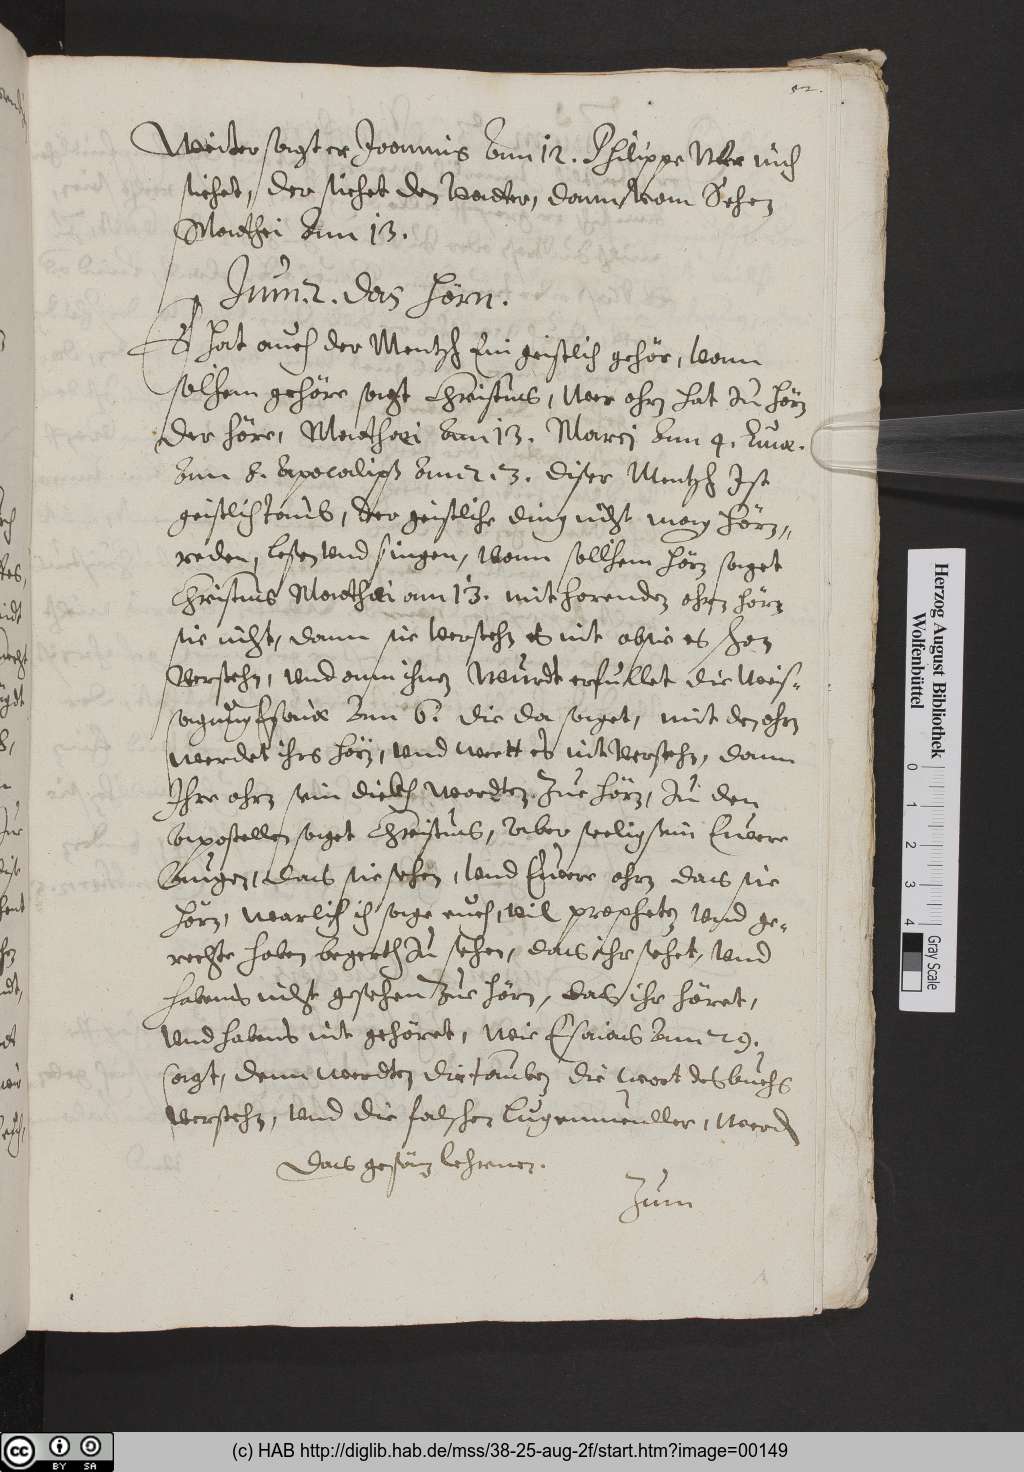 Weiter sagt er Joannis Am 12. Philippe Wer mich
sichet, der sichet den Vatter, dann vom Sehen
Mathei Am 13.
Zum 2. das Hörn.
Es hat auch der Mentsch Ein geistlich gehör, Vonn
solchem gehöre sagt Christus, Wer ohrn hat Zu hörn
der höre, Mathaei Am 13. Marci Am 4. Lucae.
Am 8. Apocalips Am 2. 3. diser Mentsch Ist
geistlich taub, der geistliche ding nicht mag hörn,
reden, lesen Vnd singen, Vonn sollchem hörn saget
Christus Mathaei am 13. mit horenden ohrn hörn
sie nicht, dann sie Verstehn es nit ob sie es schon
Verstehn, Vnd ann ihnen Wurdt erfullet die Weis-
sagung Esaiae Am 6. die da saget, mit den ohrn
werdet ihrs hörn, Vnd werdt es nit Verstehn, dann
Ihre ohrn sein dickh wordten Zue hörn, Zu den
Apostellen saget Christus, Aber seelig sein Euwere
Augen, das sie sehen, Vnd Euwere ohrn das sie
hörn, warlich ich sage euch, vil propheten Vnd ge-
rechte haben begerth Zu sehen, das ihr sehet, Vnd
habens nicht gesehen Zue hörn, das ihr höret,
Vnd habens nit gehöret, wie Esaias Am 29.
sagt, denn werdten die tauben die wort des buchs
Verstehn, Vnd die falschen Lugenmeuller, werd
das gesätz lehrnen.
Zum
Herzog August Bibliothek
Wolfenbüttel
0 1 2 3 4
Gray Scale
cc BY SA
(c) HAB http://diglib.hab.de/mss/38-25-aug-2f/start.htm?image=00149